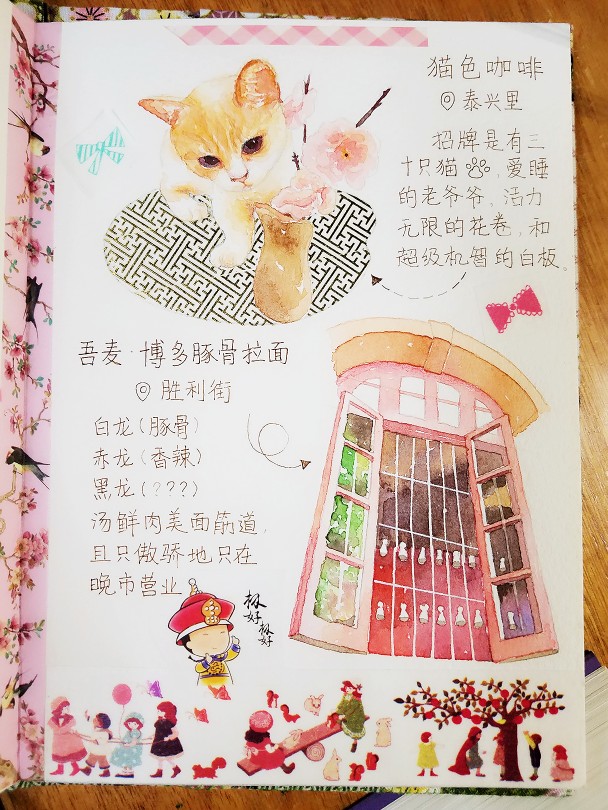 猫色咖啡
泰兴里
招牌是有三
十只猫，爱睡
的老爷爷，活力
无限的花卷，和
超级机智的白板。
吾麦·博多豚骨拉面
胜利街
白龙(豚骨)
赤龙(香辣)
黑龙(???)
汤鲜肉美面筋道，
且只傲骄地只在
晚市营业。
极好
极好